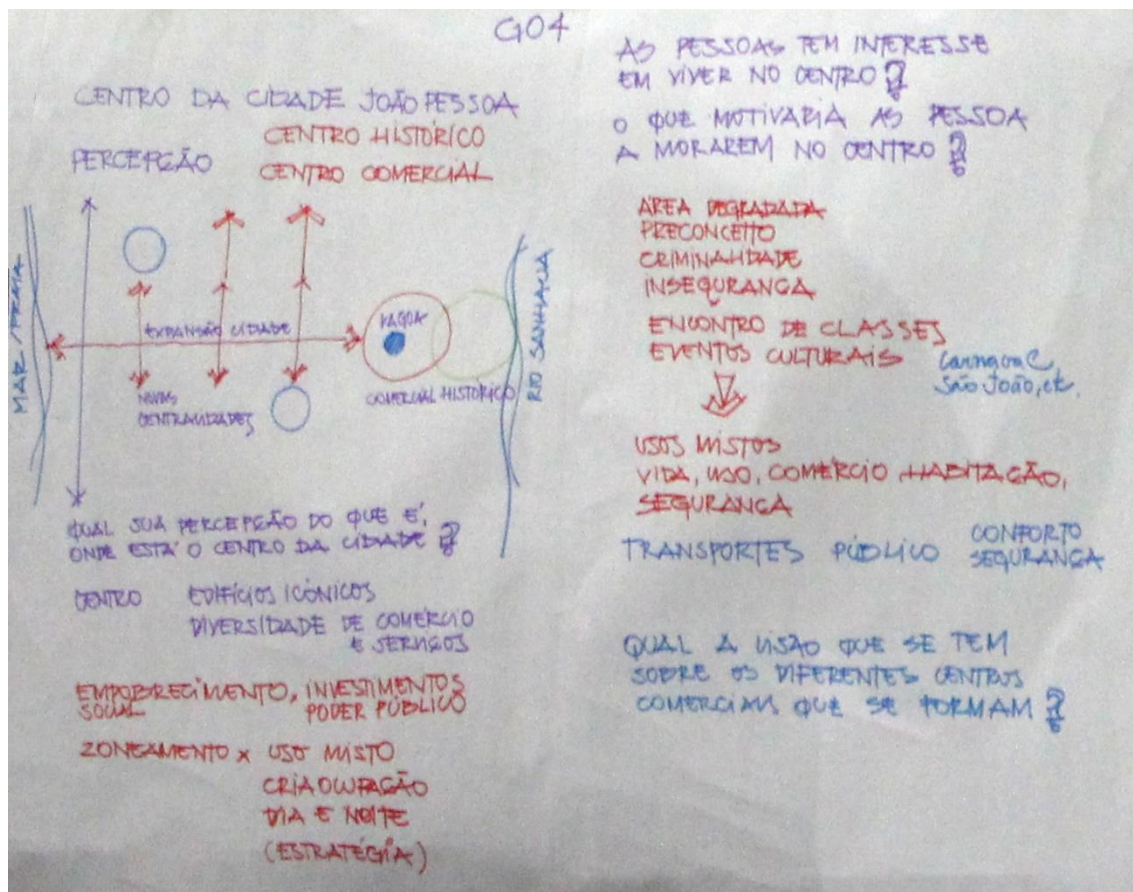 G04
CENTRO DA CIDADE JOÃO PESSOA
CENTRO HISTÓRICO
PERCEPÇÃO
CENTRO COMERCIAL
MAR / PRAIA
EXPANSÃO CIDADE
LAGOA
NOVAS
CENTRALIDADES
COMERCIAL HISTÓRICO
RIO SANHAUÁ
QUAL SUA PERCEPÇÃO DO QUE É,
ONDE ESTÁ O CENTRO DA CIDADE ?
CENTRO EDIFÍCIOS ICÔNICOS
DIVERSIDADE DE COMÉRCIO
E SERVIÇOS
EMPOBRECIMENTO, INVESTIMENTOS
SOCIAL PODER PÚBLICO
ZONEAMENTO x USO MISTO
CRIA OCUPAÇÃO
DIA E NOITE
(ESTRATÉGIA)
AS PESSOAS TEM INTERESSE
EM VIVER NO CENTRO ?
O QUE MOTIVARIA AS PESSOA
A MORAREM NO CENTRO ?
ÁREA DEGRADADA
PRECONCEITO
CRIMINALIDADE
INSEGURANÇA
ENCONTRO DE CLASSES
EVENTOS CULTURAIS
Carnaval,
São João, etc.
USOS MISTOS
VIDA, USO, COMÉRCIO HABITAÇÃO,
SEGURANÇA
TRANSPORTES PÚBLICO CONFORTO
SEGURANÇA
QUAL A VISÃO QUE SE TEM
SOBRE OS DIFERENTES CENTROS
COMERCIAIS QUE SE FORMAM ?